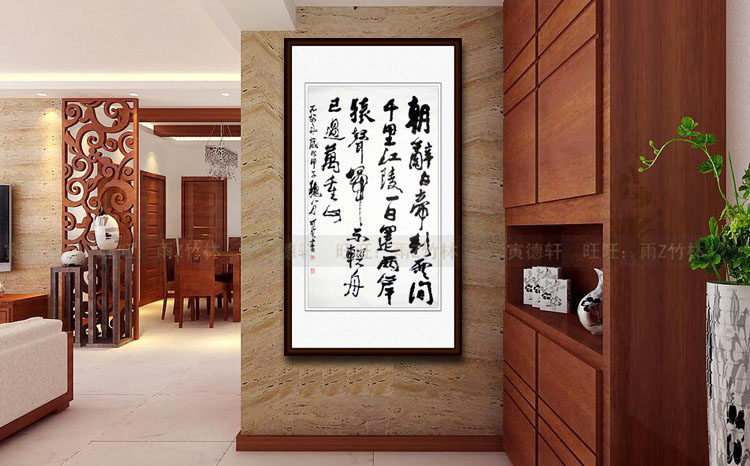 朝辭白帝彩雲間
千里江陵一日還兩岸
猿聲啼不輕舟
已過萬重山
雨Z竹林
德轩 旺旺：雨Z竹林
寅德轩 旺旺：雨Z竹林